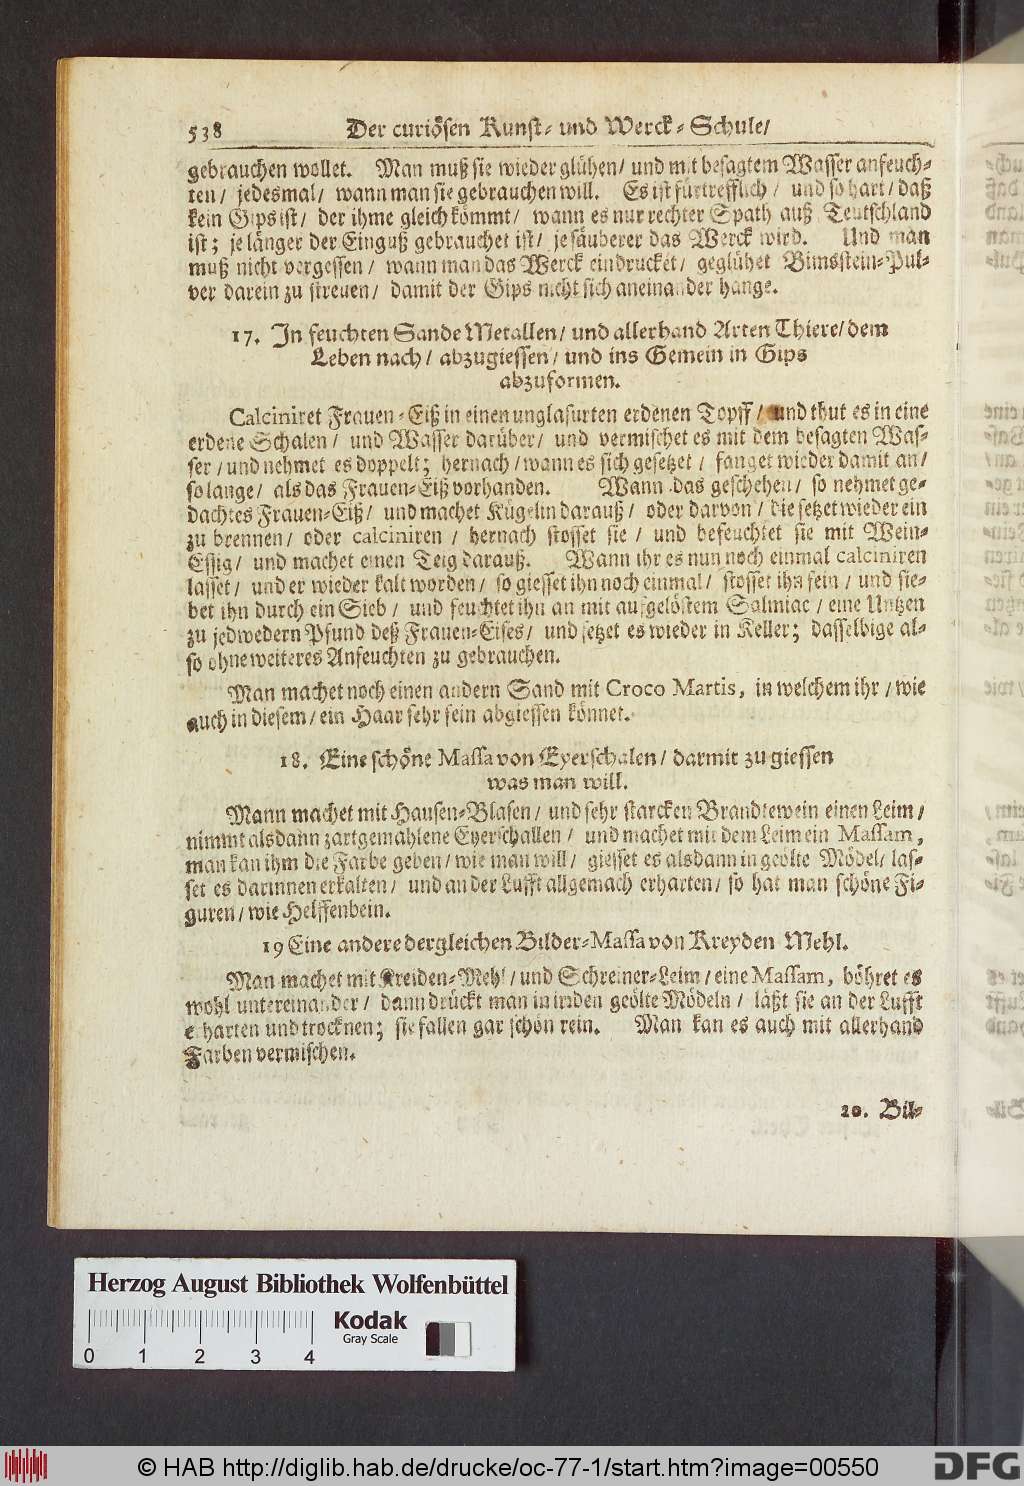 538 Der curiösen Kunst- und Werck-Schule/
gebrauchen wollet. Man muß sie wieder glühen/ und mit besagtem Wasser anfeuch-
ten/ jedesmal/ wann man sie gebrauchen will. Es ist fürtrefflich/ und so hart/ daß
kein Gips ist/ der ihme gleich kömmt/ wann es nur rechter Spath auß Teutschland
ist; je länger der Einguß gebrauchet ist/ je säuberer das Werck wird. Und man
muß nicht vergessen/ wann man das Werck eindrucket/ geglühet Bimsstein-Pul-
ver darein zu streuen/ damit der Gips nicht sich aneinander hange.
17. In feuchten Sande Metallen/ und allerhand Arten Thiere/ dem
Leben nach/ abzugiessen/ und ins Gemein in Gips
abzuformen.
Calciniret Frauen-Eiß in einen unglasurten erdenen Topff/ und thut es in eine
erdene Schalen/ und Wasser darüber/ und vermischet es mit dem besagten Was-
ser/ und nehmet es doppelt; hernach/ wann es sich gesetzet/ fanget wieder damit an/
so lange/ als das Frauen-Eiß vorhanden. Wann das geschehen/ so nehmet ge-
dachtes Frauen-Eiß/ und machet Kügelin darauß/ oder darvon/ die setzet wieder ein
zu brennen/ oder calciniren/ hernach stosset sie/ und befeuchtet sie mit Wein-
Essig/ und machet einen Teig darauß. Wann ihr es nun noch einmal calciniren
lasset/ und er wieder kalt worden/ so giesset ihn noch einmal/ stosset ihn fein/ und sie-
bet ihn durch ein Sieb/ und feuchtet ihn an mit aufgelöstem Salmiac/ eine Untzen
zu jedwedern Pfund deß Frauen-Eises/ und setzet es wieder in Keller; dasselbige al-
so ohne weiteres Anfeuchten zu gebrauchen.
Man machet noch einen andern Sand mit Croco Martis, in welchem ihr/ wie
auch in diesem/ ein Haar sehr fein abgiessen könnet.
18. Eine schöne Massa von Eyerschalen/ darmit zu giessen
was man will.
Mann machet mit Hausen-Blasen/ und sehr starcken Brandtewein einen Leim/
nimmt alsdann zartgemahlene Eyerschallen/ und machet mit dem Leim ein Massam,
man kan ihm die Farbe geben/ wie man will/ giesset es alsdann in geölte Mödel/ las-
set es darinnen erkalten/ und an der Lufft allgemach erharten/ so hat man schöne Fi-
guren/ wie Helffenbein.
19 Eine andere dergleichen Bilder-Massa von Kreyden Mehl.
Man machet mit Kreiden-Mehl/ und Schreiner-Leim/ eine Massam, böhret es
wohl untereinander/ dann drückt man in in den geölte Mödeln/ läßt sie an der Lufft
erharten und trocknen; sie fallen gar schön rein. Man kan es auch mit allerhand
Farben vermischen.
20. Bil-
Herzog August Bibliothek Wolfenbüttel
Kodak
Gray Scale
0 1 2 3 4
© HAB http://diglib.hab.de/drucke/oc-77-1/start.htm?image=00550
DFG